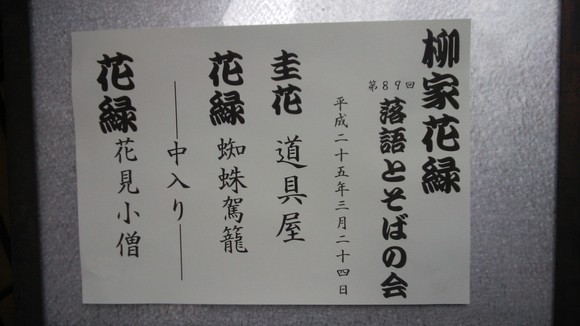 柳家花緑
第89回
落語とそばの会
平成二十五年三月二十四日
圭花 道具屋
花緑 蜘蛛駕籠
――中入り――
花緑 花見小僧